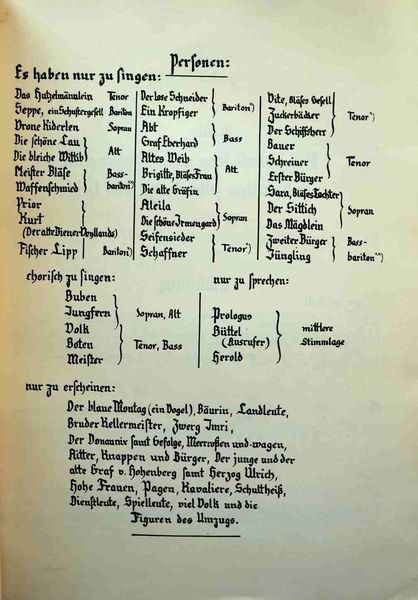 Personen:
Es haben nur zu singen:
Das Hutzelmännlein Tenor
Seppe, ein Schustergesell Bariton
Vrone Kiderlen Sopran
Die schöne Lau
Die bleiche Wittib
Alt
Meister Bläse
Waffenschmied
Bass-
bariton*)
Prior
Kurt
(Der alte Diener Vryllands)
Fischer Lipp
Bariton*)
Der lose Schneider
Ein Kropfiger
Bariton*)
Abt
Graf Eberhard
Bass
Altes Weib
Brigitte, Bläses Frau
Die alte Gräfin
Alt
Aleila
Die schöne Irmengard
Sopran
Seifensieder
Schaffner
Tenor*)
Vite, Bläses Gesell
Zuckerbäcker
Der Schiffsherr
Tenor*)
Bauer
Schreiner
Erster Bürger
Tenor
Sara, Bläses Tochter
Der Sittich
Das Mägdlein
Sopran
Zweiter Bürger
Jüngling
Bass-
bariton**)
chorisch zu singen:
Buben
Jungfern
Sopran, Alt
Volk
Boten
Meister
Tenor, Bass
nur zu sprechen:
Prologus
Büttel
(Ausrufer)
Herold
mittlere
Stimmlage
nur zu erscheinen:
Der blaue Montag (ein Vogel), Bäurin, Landleute,
Bruder Kellermeister, Zwerg Imri,
Der Donaunix samt Gefolge, Meerroßen und -wagen,
Ritter, Knappen und Bürger, Der junge und der
alte Graf v. Hohenberg samt Herzog Ulrich,
Hohe Frauen, Pagen, Kavaliere, Schultheiß,
Dienstleute, Spielleute, viel Volk und die
Figuren des Umzugs.